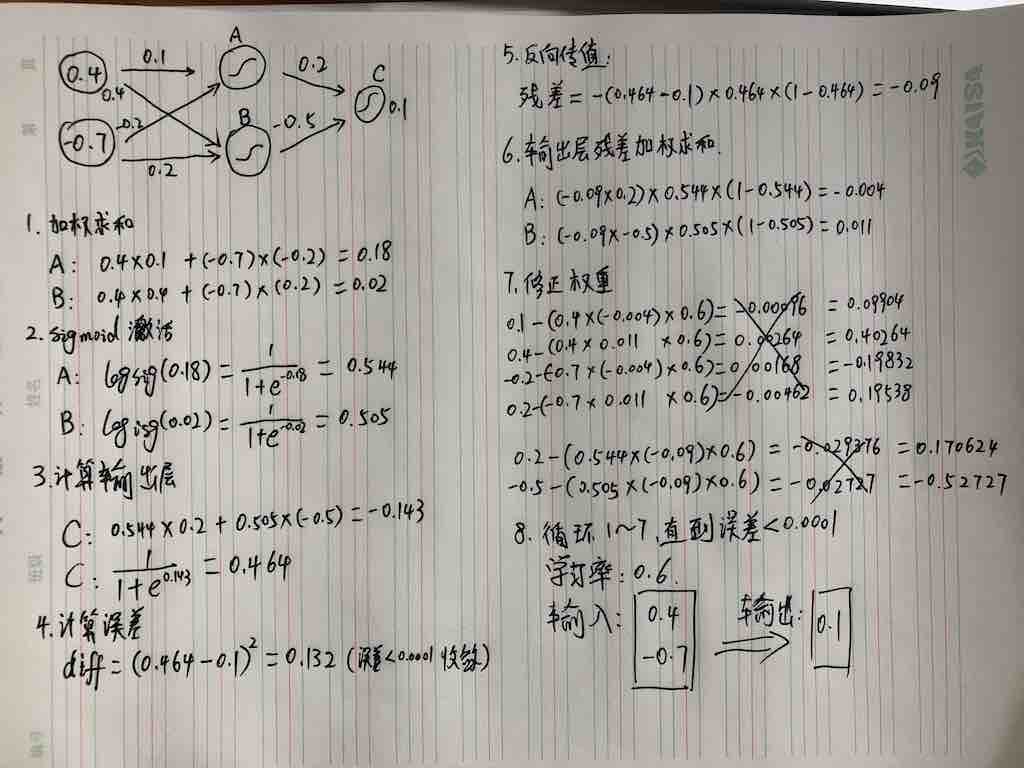 A
0.4
0.1
0.2
C
0.4
0.1
-0.2
B
-0.7
-0.5
0.2
1. 加权求和
A: 0.4×0.1 +(-0.7)×(-0.2) = 0.18
B: 0.4×0.4 +(-0.7)×(0.2) = 0.02
2. sigmoid 激活
A: logsig(0.18) = 1/(1+e^-0.18) = 0.544
B: logisg(0.02) = 1/(1+e^-0.02) = 0.505
3. 计算输出层
C: 0.544×0.2 + 0.505×(-0.5) = -0.143
C: 1/(1+e^0.143) = 0.464
4. 计算误差
diff = (0.464-0.1)² = 0.132 (误差<0.0001 收敛)
5. 反向传值:
残差 = -(0.464-0.1)×0.464×(1-0.464) = -0.09
6. 输出层残差加权求和.
A: (-0.09×0.2)×0.544×(1-0.544) = -0.004
B: (-0.09×-0.5)×0.505×(1-0.505) = 0.011
7. 修正权重
0.1-(0.4×(-0.004)×0.6) = -0.00096 = 0.09904
0.4-(0.4×0.011 ×0.6) = 0.00264 = 0.40264
-0.2-(-0.7×(-0.004)×0.6) = 0.00168 = -0.19832
0.2-(-0.7×0.011 ×0.6) = -0.00462 = 0.19538
0.2-(0.544×(-0.09)×0.6) = -0.029376 = 0.170624
-0.5-(0.505×(-0.09)×0.6) = -0.02727 = -0.52727
8. 循环 1~7, 直到误差<0.0001
学习率: 0.6.
输入: 0.4 输出: 0.1
-0.7
页
第
姓名
班级
编号